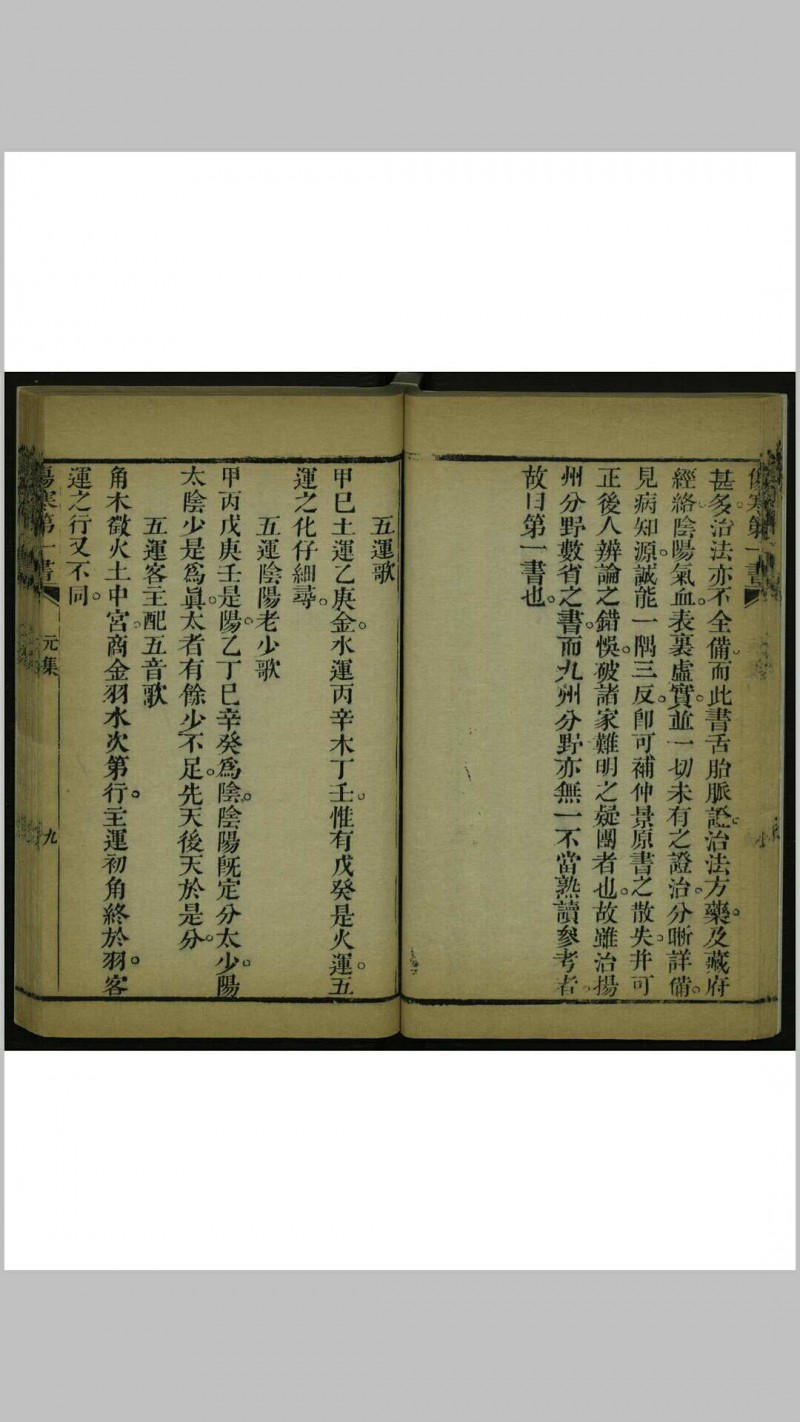 傷寒第一書
甚多。治法亦不全備。而此書舌胎脈證。治法方藥。及藏府
經絡。陰陽氣血。表裏虛實。並一切未有之證治。分晰詳備。
見病知源。誠能一隅三反。卽可補仲景原書之散失。并可
正後人辨論之錯悞。破諸家難明之疑團者也。故雖治揚
州分野數省之書。而九州分野亦無一不當熟讀參考者。
故曰第一書也。
五運歌
甲巳土運乙庚金。水運丙辛木丁壬。惟有戊癸是火運。五
運之化仔細尋。
五運陰陽老少歌
甲丙戊庚壬是陽。乙丁巳辛癸爲陰。陰陽旣定分太少。陽
太陰少是爲眞。太者有餘少不足。先天後天於是分。
五運客主配五音歌
角木徵火土中宮。商金羽水次第行。主運初角終於羽。客
運之行又不同。
傷寒第一書
元集
九